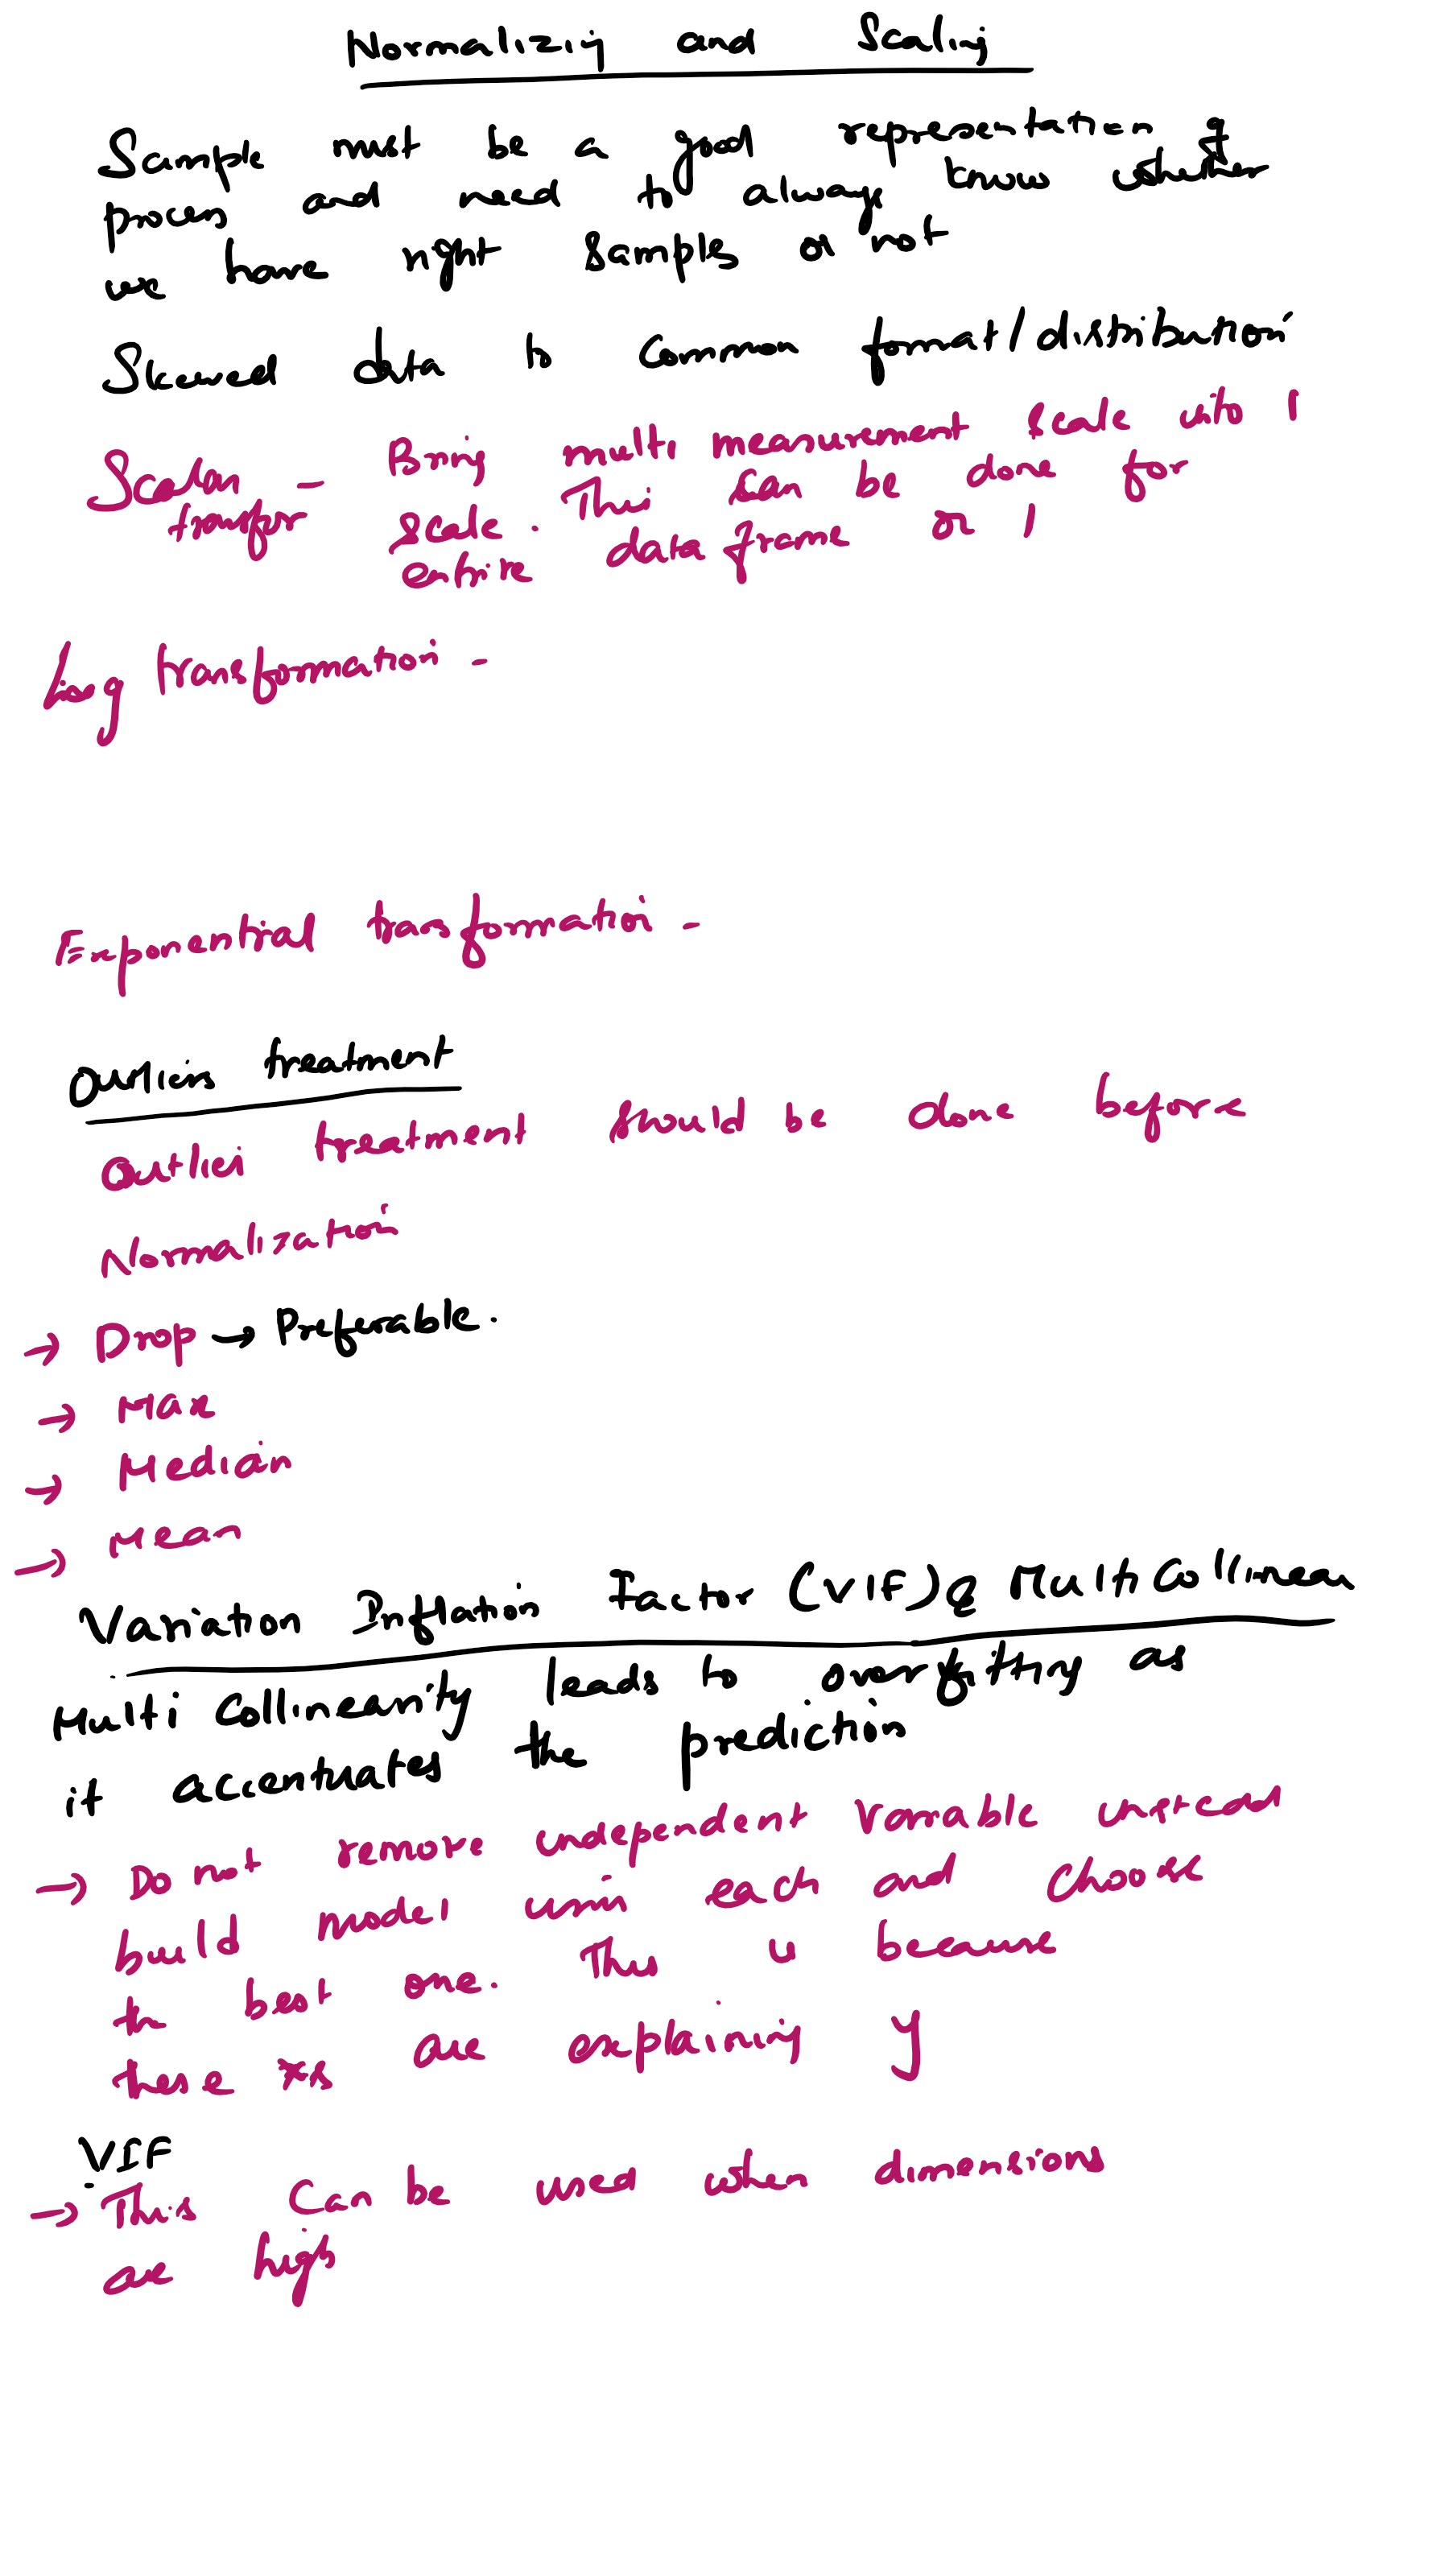 Normalizing and Scaling
Sample must be a good representation of
process and need to always know whether
we have right samples or not
Skewed data to common format/distribution
Scalar - Bring multi measurement scale into 1
transfor scale. This can be done for
entire data frame or 1
Log transformation -
Exponential transformation -
Outliers treatment
Outlier treatment should be done before
Normalization
→ Drop → Preferable.
→ Max
→ Median
→ Mean
Variation Inflation Factor (VIF) & Multi Collinear
Multi Collinearity leads to overfitting as
it accentuates the prediction
→ Do not remove independent variable instead
build model using each and choose
the best one. This is because
these xs are explaining y
VIF
→ This can be used when dimensions
are high